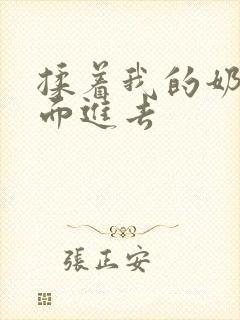 揉着我的奶
而進去
張正安